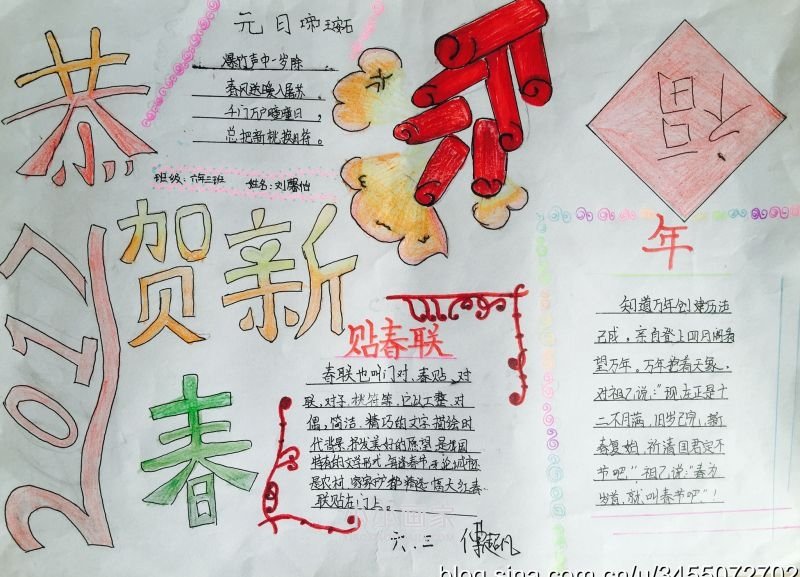 恭
贺新
春
2017
元日 王安石
爆竹声中一岁除
春风送暖入屠苏。
千门万户曈曈日，
总把新桃换旧符。
班级：六年三班 姓名：刘馨怡
福
贴春联
春联也叫门对、春贴、对
联，对子，桃符等，它以工整、对
偶，简洁、精巧的文字描绘时
代背景，抒发美好的愿望，是我国
特有的文学形式，每逢春节，无论城市还
是农村，家家户户都精选一幅大红春
联贴在门上。
六.三
年
知道万年创建历法
已成，亲自登上日月阁看
望万年。万年指着天象，
对祖乙说：“现在正是十
二个月满，旧岁已完，新
春复始，祈请国君定个
节吧”祖乙说：“春为
岁首，就叫春节吧”！
小小画家
blog.sina.com.cn/u/3455072702